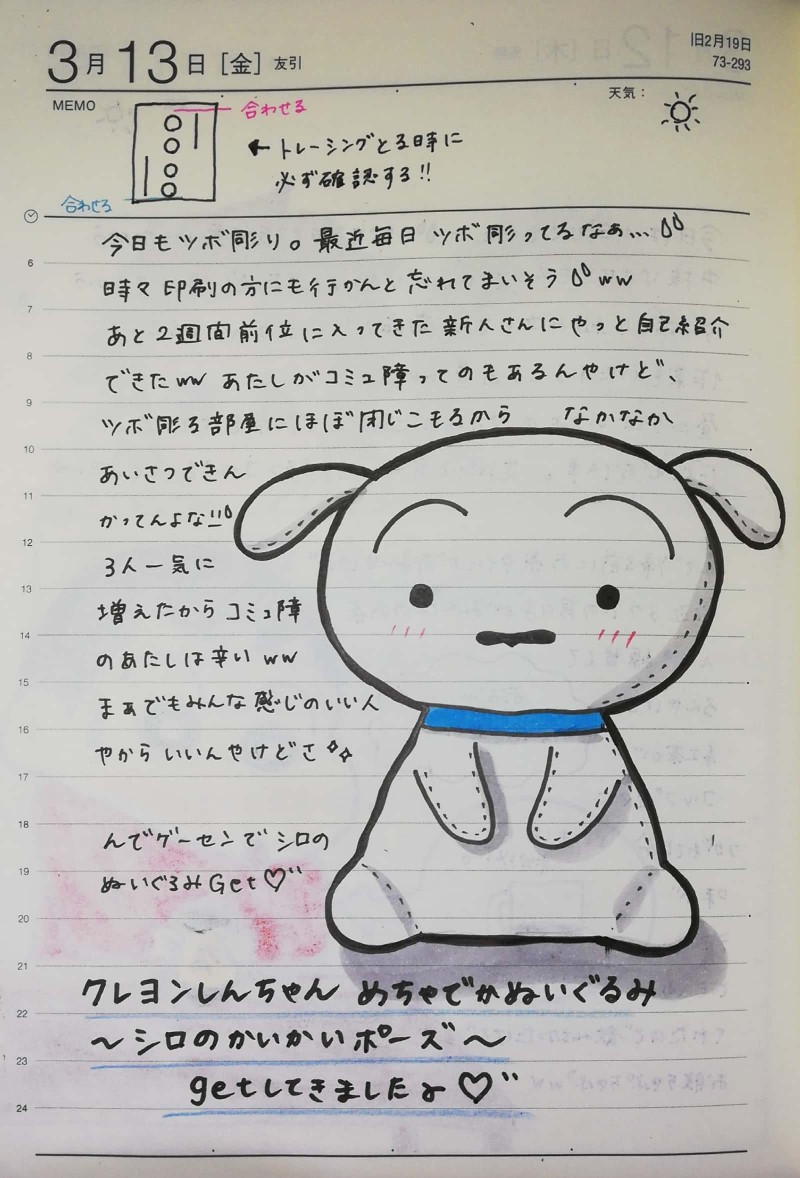 3月13日[金] 友引
旧2月19日
73-293
MEMO
天気：
合わせる
←トレーシングとる時に
必ず確認する!!
合わせる
今日もツボ彫り。最近毎日 ツボ彫ってるなぁ...
時々 印刷の方にも行かんと 忘れてまいそう ww
あと2週間前位に入ってきた 新人さんにやっと自己紹介
できたww あたしがコミュ障ってのもあるんやけど、
ツボ彫る部屋にほぼ閉じこもるから なかなか
あいさつできん
かってんよな!!!
3人一気に
増えたからコミュ障
のあたしは辛いww
まぁでもみんな感じのいい人
やから いいんやけどさ
んでゲーセンでシロの
ぬいぐるみGet♡
クレヨンしんちゃん めちゃでかぬいぐるみ
〜シロのかいかいポーズ〜
getしてきましたよ♡
6
7
8
9
10
11
12
13
14
15
16
17
18
19
20
21
22
23
24